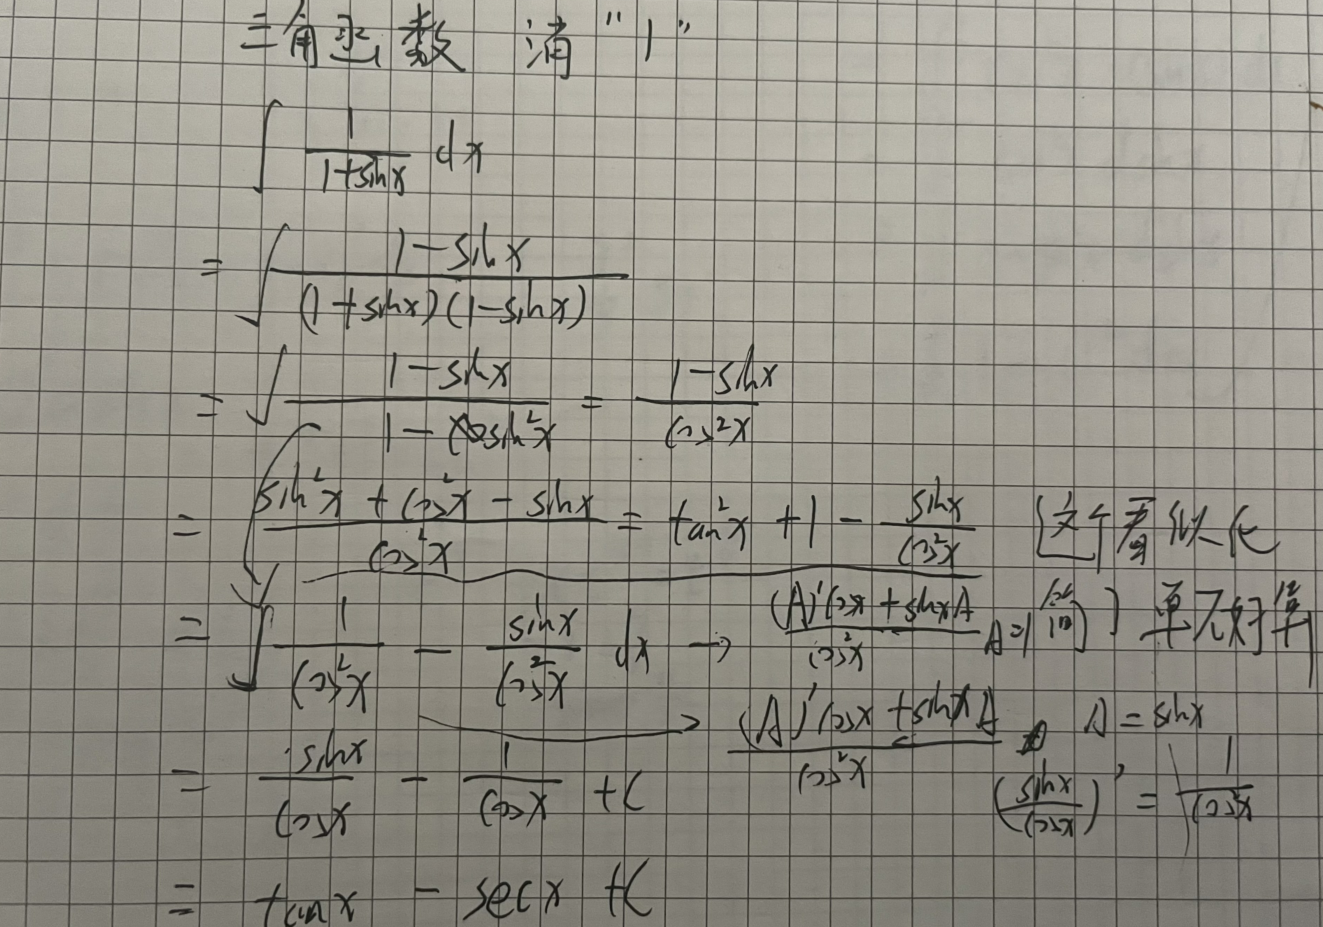 三角函数 消“1”
∫ 1/(1+sinx) dx
= ∫ (1-sinx)/((1+sinx)(1-sinx))
= ∫ (1-sinx)/(1-sin²x) = (1-sinx)/(cos²x)
= (sin²x+cos²x-sinx)/(cos²x) = tan²x+1-sinx/(cos²x) [这个看似化
= ∫ 1/(cos²x) - sinx/(cos²x) dx → ((A)'cosx+sinxA)/(cos²x) A=1 ] 单不好算
→ ((A)'cosx+sinxA)/(cos²x) A=sinx
= sinx/cosx - 1/cosx +C (sinx/cosx)' = 1/(cos²x)
= tanx - secx +C